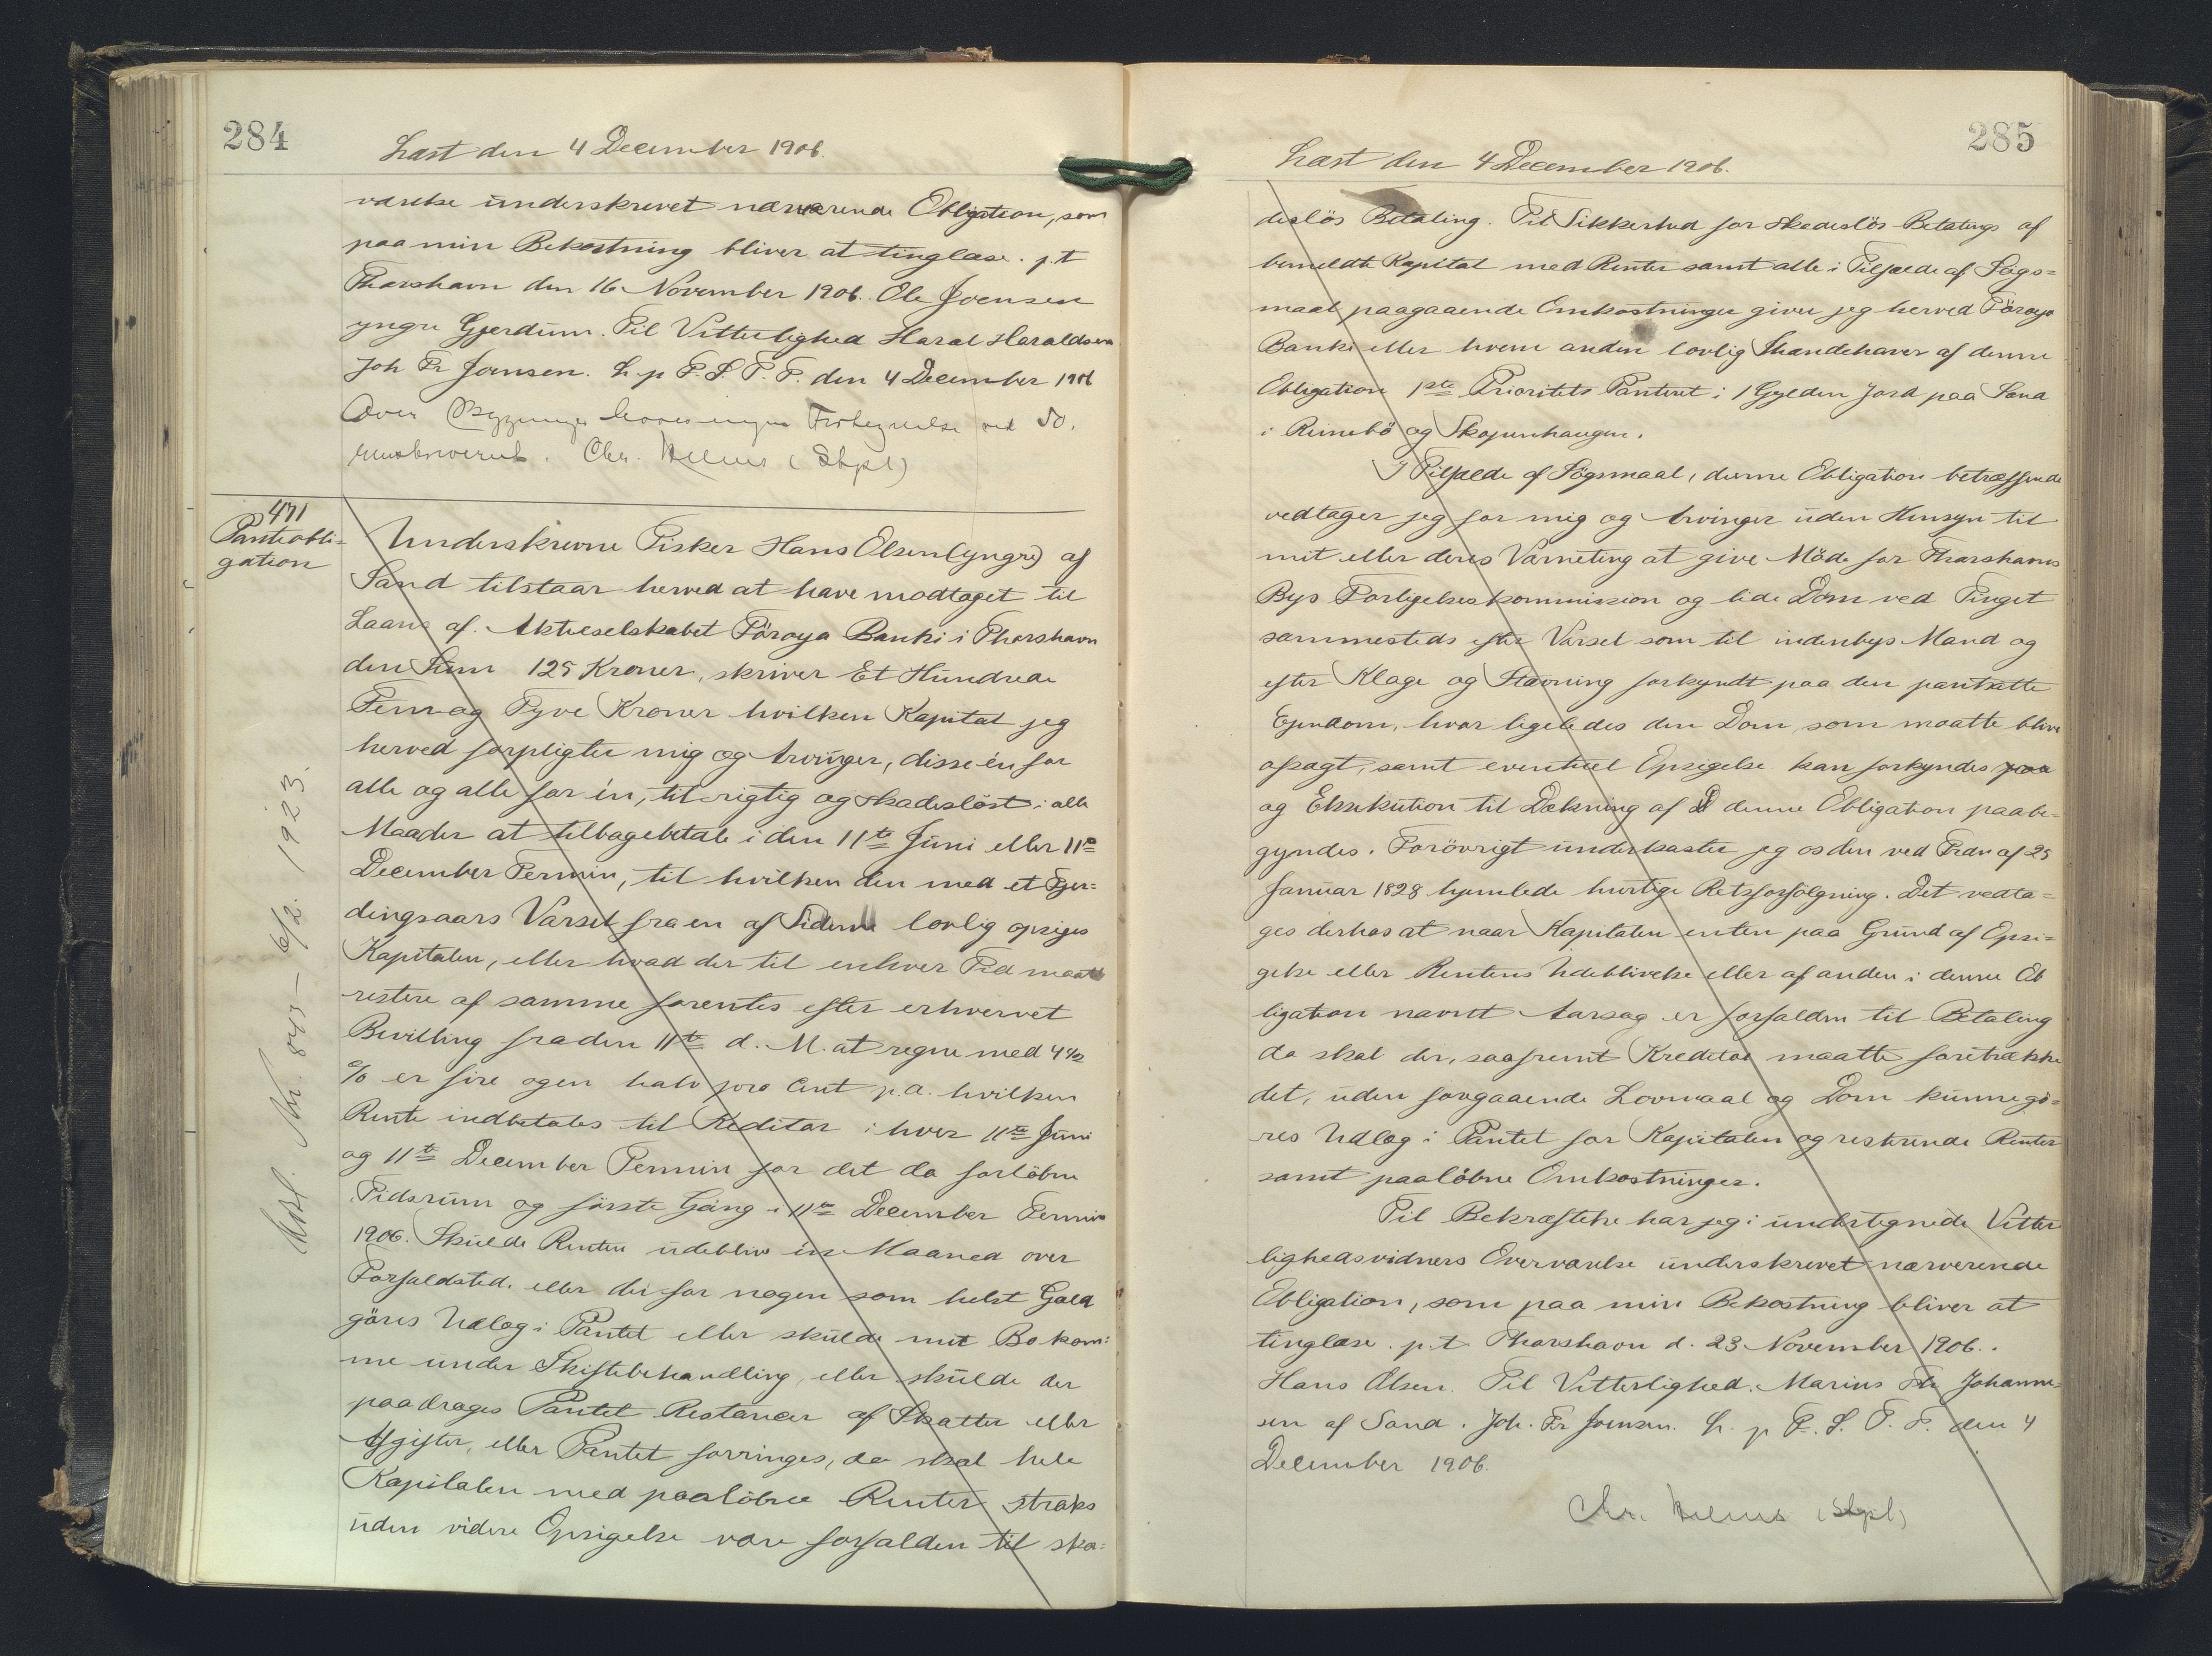 284
Læst den 4 December 1906.
værelse underskrevet nærværende Obligation, som
paa min Bekostning bliver at tinglæse. p.t
Thorshavn den 16 November 1906. Ole Joensen
yngre Gjerdum. Til Vitterlighed Haral Haraldsen
Joh Fr Joensen. L. p F. S. T. P. den 4 December 1906
Over Bygninger haves ingen ved
Chr. (Stpl)
471
Panteobli=
gation
Underskrevne Fisker Hans Olsen (yngre) af
Sand tilstaar herved at have modtaget til
Laans af Aktieselskabet Föroya Banki i Thorshavn
den Sum 125 Kroner, skriver Et Hundrede
Fem og Tyve Kroner hvilken Kapital jeg
herved forpligter mig og Arvinger, disse én for
alle og alle for én, til rigtig og skadesløst i alle
Maader at tilbagebetale i den 11te Juni eller 11te
December Termin, til hvilken den med et Fjer=
dingsaars Varsel fra en af Siderne lovlig opsiges
Kapitalen, eller hvad der til enhver Tid maatte
restere af samme forentes efter erhvervet
Bevilling fra den 11te d. M. at regne med 4½
% er fire og en halv pro Cent p.a. hvilken
Rente indbetales til Kreditor i hver 11te Juni
og 11te December Termin for det da forløbne
Tidsrum og første Gang i 11te December Termin
1906. Skulde Renten udeblive én Maaned over
Forfaldstid. eller der for nogen som helst Gæld
göres Udlæg i Pantet eller skulde mit Bo kom=
me under Skiftebehandling, eller skulde der
paadrages Pantet Restancer af Skatter eller
Afgifter, eller Pantet forringes, da skal hele
Kapitalen med paaløbne Renter straks
uden videre Opsigelse være forfalden til ska=
Udsl. Nr. 843 - 6/2. 1923.
285
Læst den 4 December 1906.
deslös Betaling. Til Sikkerhed for skadeslös Betaling af
bemeldte Kapital med Renter samt alle i Tilfælde af Sögs=
maal paagaaende Omkostninger giver jeg herved Föroya
Banki eller hvem anden lovlig Ihændehaver af denne
Obligation 1ste Prioritets Panteret i 1 Gylden Jord paa Sand
i Reinebö og Skopunhaugen.
I Tilfælde af Sögsmaal, denne Obligation betræffende
vedtager jeg for mig og Arvinger uden Hensyn til
mit eller deres Værneting at give Möde for Thorshavns
Bys Forligelseskommission og lide Dom ved Tinget
sammesteds efter Varsel som til indenbys Mand og
efter Klage og Stævning forkyndt paa den pantsatte
Ejendom, hvor ligeledes den Dom, som maatte blive
afsagt, samt eventuel Opsigelse kan forkyndes paa
og Eksekution til Dækning af D denne Obligation paabe=
gyndes. Forövrigt underkaster jeg os den ved Frdn af 25
Januar 1828 hjemlede hurtige Retsforfölgning. Det vedta=
ges derhos at naar Kapitalen enten paa Grund af Opsi=
gelse eller Rentens Udeblivelse eller af anden i denne Ob
ligation nævnt Aarsag er forfalden til Betaling
da skal der, saafremt Kreditor maatte foretrække
det, uden forgaaende Lovmaal og Dom kunne gö=
res Udlæg i Pantet for Kapitalen og resterende Renter
samt paalöbne Omkostninger.
Til Bekræftelse har jeg i undertegnede Vitter
lighedsvidners Overværelse underskrevet nærværende
Obligation, som paa min Bekostning bliver at
tinglæse. p.t Thorshavn d. 23 November 1906.
Hans Olsen. Til Vitterlighed. Marius Johanne=
sen af Sand. Joh. Fr Joensen. L. p F. S. T. P. den 4
December 1906.
Chr. (Stpl)